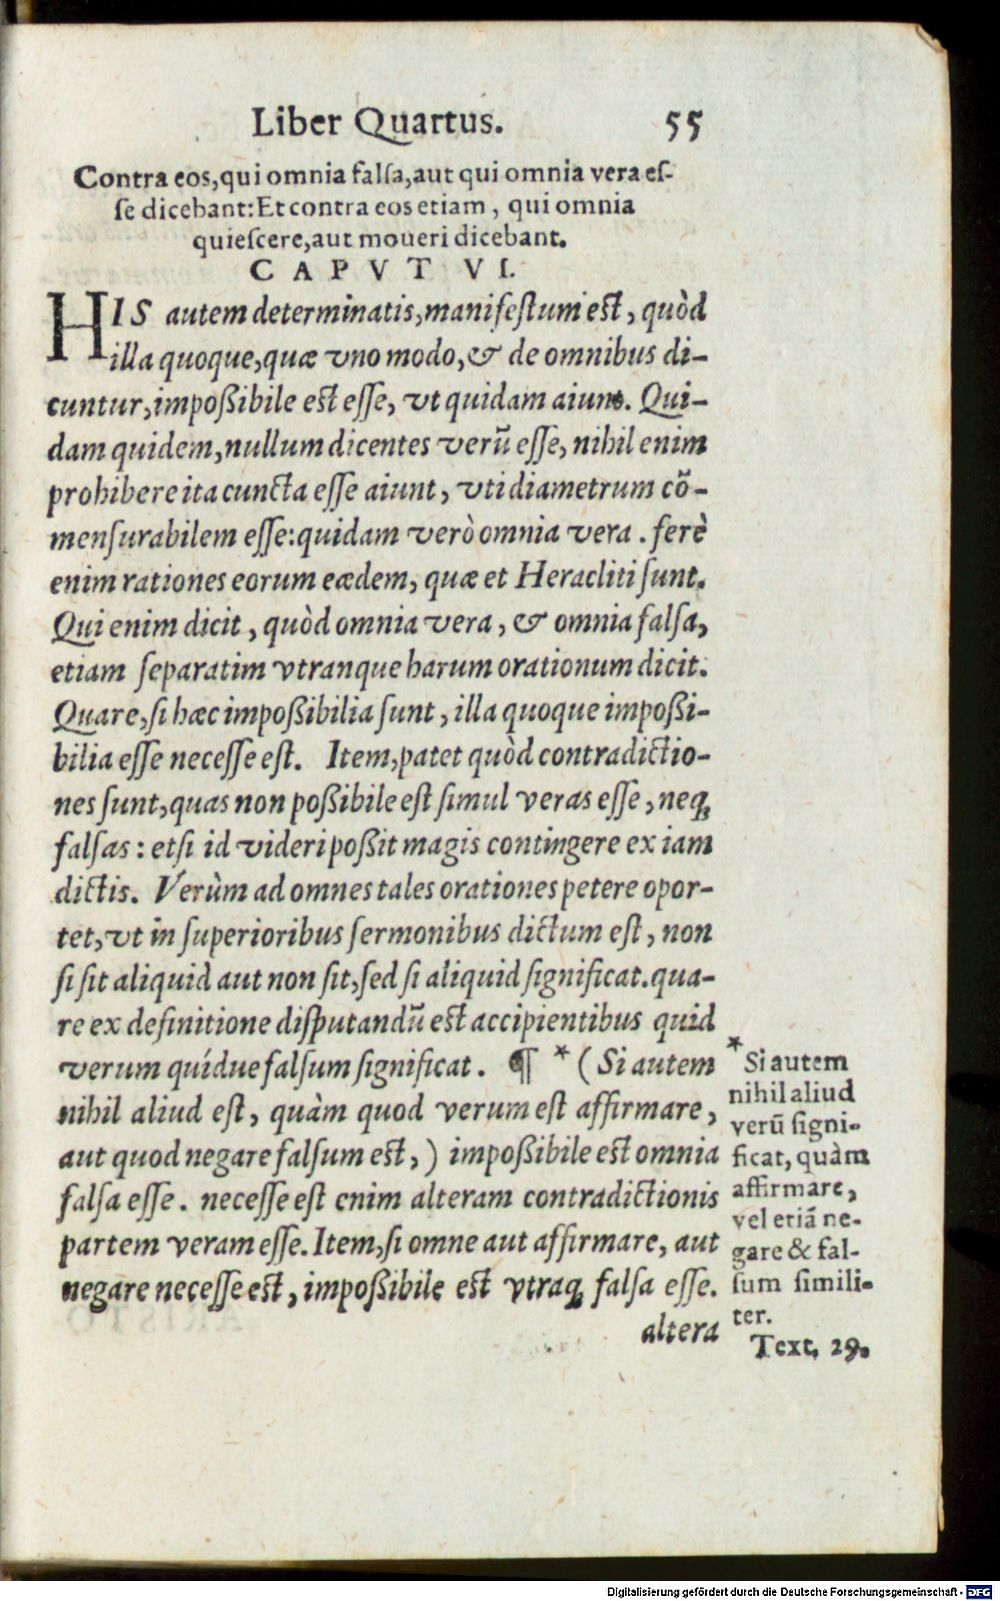 Liber Quartus. 55
Contra eos, qui omnia falsa, aut qui omnia vera es-
se dicebant: Et contra eos etiam, qui omnia
quiescere, aut moueri dicebant.
CAPVT VI.
HIS autem determinatis, manifestum est, quòd
illa quoque, quæ vno modo, & de omnibus di-
cuntur, impoßibile est esse, vt quidam aiunt. Qui-
dam quidem, nullum dicentes verũ esse, nihil enim
prohibere ita cuncta esse aiunt, vti diametrum cõ-
mensurabilem esse: quidam verò omnia vera. ferè
enim rationes eorum eædem, quæ et Heracliti sunt.
Qui enim dicit, quòd omnia vera, & omnia falsa,
etiam separatim vtranque harum orationum dicit.
Quare, si hæc impoßibilia sunt, illa quoque impoßi-
bilia esse necesse est. Item, patet quòd contradictio-
nes sunt, quas non poßibile est simul veras esse, neq;
falsas: etsi id videri poßit magis contingere ex iam
dictis. Verùm ad omnes tales orationes petere opor-
tet, vt in superioribus sermonibus dictum est, non
si sit aliquid aut non sit, sed si aliquid significat. qua-
re ex definitione disputandũ est accipientibus quid
verum quídue falsum significat. ¶ * (Si autem
nihil aliud est, quàm quod verum est affirmare,
aut quod negare falsum est,) impoßibile est omnia
falsa esse. necesse est enim alteram contradictionis
partem veram esse. Item, si omne aut affirmare, aut
negare necesse est, impoßibile est vtraq; falsa esse.
altera
* Si autem
nihil aliud
verũ signi-
ficat, quàm
affirmare,
vel etiã ne-
gare & fal-
sum simili-
ter.
Text. 29.
Digitalisierung gefördert durch die Deutsche Forschungsgemeinschaft - DFG